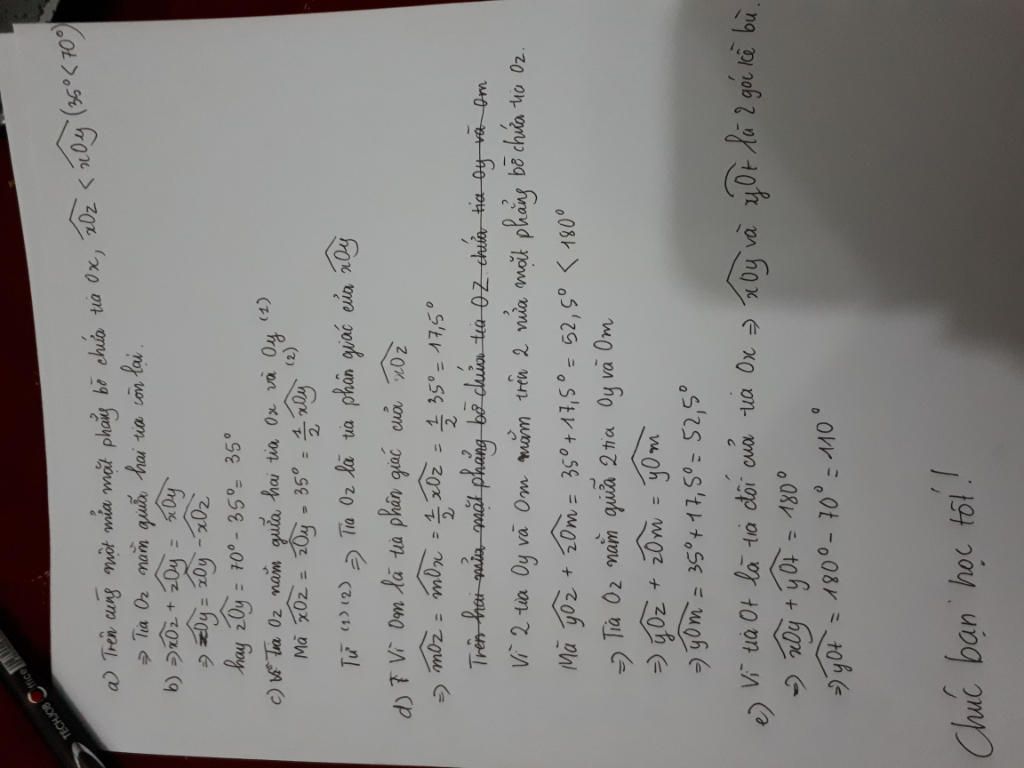 a) Trên cùng một nửa mặt phẳng bờ chứa tia Ox, $\widehat{xOz}$ < $\widehat{xOy}$ (35° < 70°)
⇒ Tia Oz nằm giữa hai tia còn lại.
b) ⇒ $\widehat{xOz}$ + $\widehat{zOy}$ = $\widehat{xOy}$
⇒ $\widehat{zOy}$ = $\widehat{xOy}$ - $\widehat{xOz}$
hay $\widehat{zOy}$ = 70° - 35° = 35°
c) Vì Tia Oz nằm giữa hai tia Ox và Oy (1)
Mà $\widehat{xOz}$ = $\widehat{zOy}$ = 35° = $\frac{1}{2}$ $\widehat{xOy}$ (2)
Từ (1) (2) ⇒ Tia Oz là tia phân giác của $\widehat{xOy}$
d) Vì Om là tia phân giác của $\widehat{xOz}$
⇒ $\widehat{mOz}$ = $\widehat{mOx}$ = $\frac{1}{2}$ $\widehat{xOz}$ = $\frac{1}{2}$ 35° = 17,5°
Trên hai nửa mặt phẳng bờ chứa tia Oz chứa tia Oy và Om
Vì 2 tia Oy và Om nằm trên 2 nửa mặt phẳng bờ chứa tia Oz.
Mà $\widehat{yOz}$ + $\widehat{zOm}$ = 35° + 17,5° = 52,5° < 180°
⇒ Tia Oz nằm giữa 2 tia Oy và Om
⇒ $\widehat{yOz}$ + $\widehat{zOm}$ = $\widehat{yOm}$
⇒ $\widehat{yOm}$ = 35° + 17,5° = 52,5°
e) Vì tia Ot là tia đối của tia Ox ⇒ $\widehat{xOy}$ và $\widehat{yOt}$ là 2 góc kề bù.
⇒ $\widehat{xOy}$ + $\widehat{yOt}$ = 180°
⇒ $\widehat{yOt}$ = 180° - 70° = 110°
Chúc bạn học tốt!